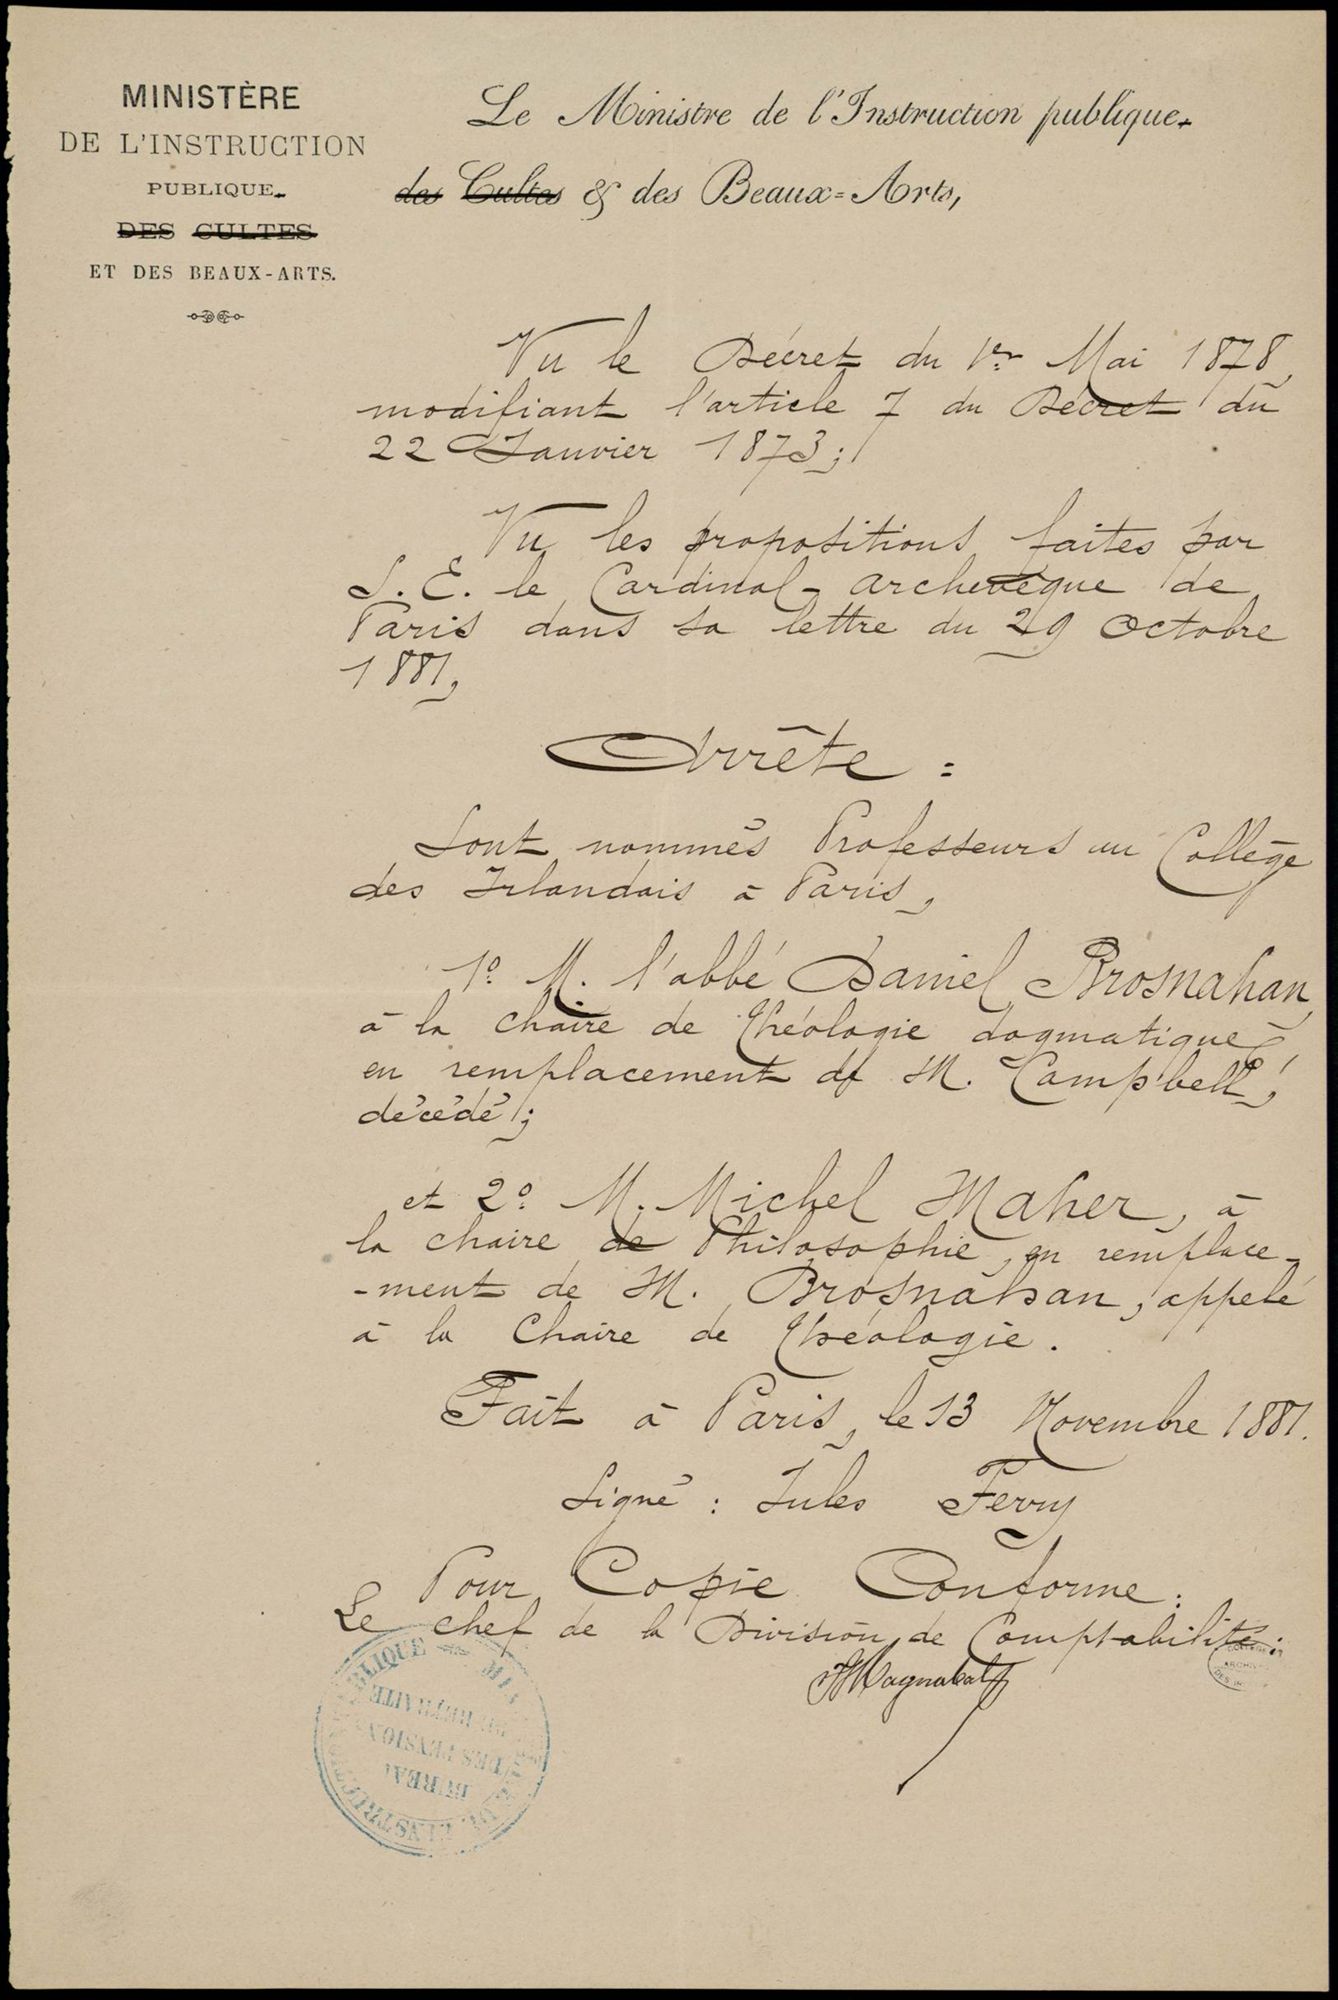 MINISTÈRE
DE L'INSTRUCTION
PUBLIQUE
DES CULTES
ET DES BEAUX-ARTS.
Le Ministre de l'Instruction publique
des Cultes & des Beaux-Arts,
Vu le Décret du 1er Mai 1878,
modifiant l'article 7 du Décret du
22 Janvier 1873;
Vu les propositions faites par
S. E. le Cardinal-archevêque de
Paris dans sa lettre du 29 Octobre
1881,
Arrête :
Sont nommés Professeurs au Collège
des Irlandais à Paris,
1º M. l'abbé Daniel Brosnahan,
à la chaire de Théologie dogmatique
en remplacement de M. Campbell,
décédé;
et 2º M. Michel Maher, à
la chaire de Philosophie, en remplace-
-ment de M. Brosnahan, appelé
à la Chaire de Théologie.
Fait à Paris, le 13 Novembre 1881.
Signé : Jules Ferry
Pour Copie Conforme :
Le chef de la Division de Comptabilité :
BUREAU
DES PENSIONS
DE RETRAITE